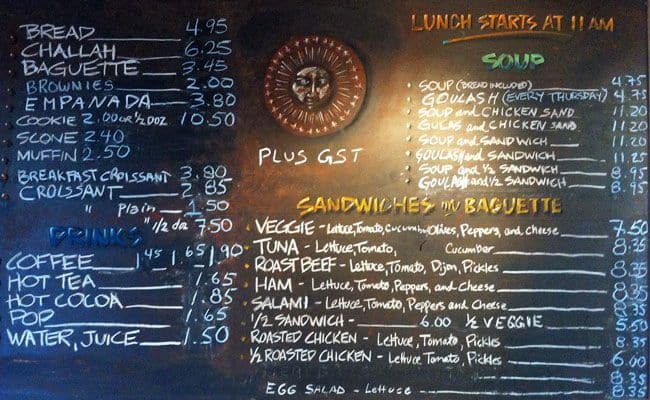 BREAD 4.95
CHALLAH 6.25
BAGUETTE 3.45
BROWNIES 2.00
EMPANADA 3.80
COOKIE 2.00 OR ½ DOZ 10.50
SCONE 2.40
MUFFIN 2.50
BREAKFAST CROISSANT 3.80
CROISSANT 2.85
" Plain 1.50
" ½ doz 7.50
DRINKS
COFFEE 1.45 1.65 1.90
HOT TEA 1.65
HOT COCOA 1.85
POP 1.65
WATER, JUICE 1.50
PLUS GST
LUNCH STARTS AT 11 AM
SOUP
SOUP (BREAD INCLUDED) 4.75
GOULASH (EVERY THURSDAY) 4.75
SOUP and CHICKEN SAND 11.20
GULAS and CHICKEN SAND 11.20
SOUP and SANDWICH 11.20
GOULASH and SANDWICH 11.25
SOUP and ½ SANDWICH 8.95
GOULASH and ½ SANDWICH 8.95
SANDWICHES on BAGUETTE
VEGGIE - Lettuce, Tomato, Cucumber, Olives, Peppers, and Cheese 7.50
TUNA - Lettuce, Tomato, Cucumber 8.35
ROAST BEEF - Lettuce, Tomato, Dijon, Pickles 8.35
HAM - Lettuce, Tomato, Peppers, and Cheese 8.35
SALAMI - Lettuce, Tomato, Peppers and Cheese 8.35
½ SANDWICH - 6.00 ½ VEGGIE 5.50
ROASTED CHICKEN - Lettuce, Tomato, Pickles 8.35
½ ROASTED CHICKEN - Lettuce, Tomato, Pickles 6.00
8.35
EGG SALAD - Lettuce 8.35